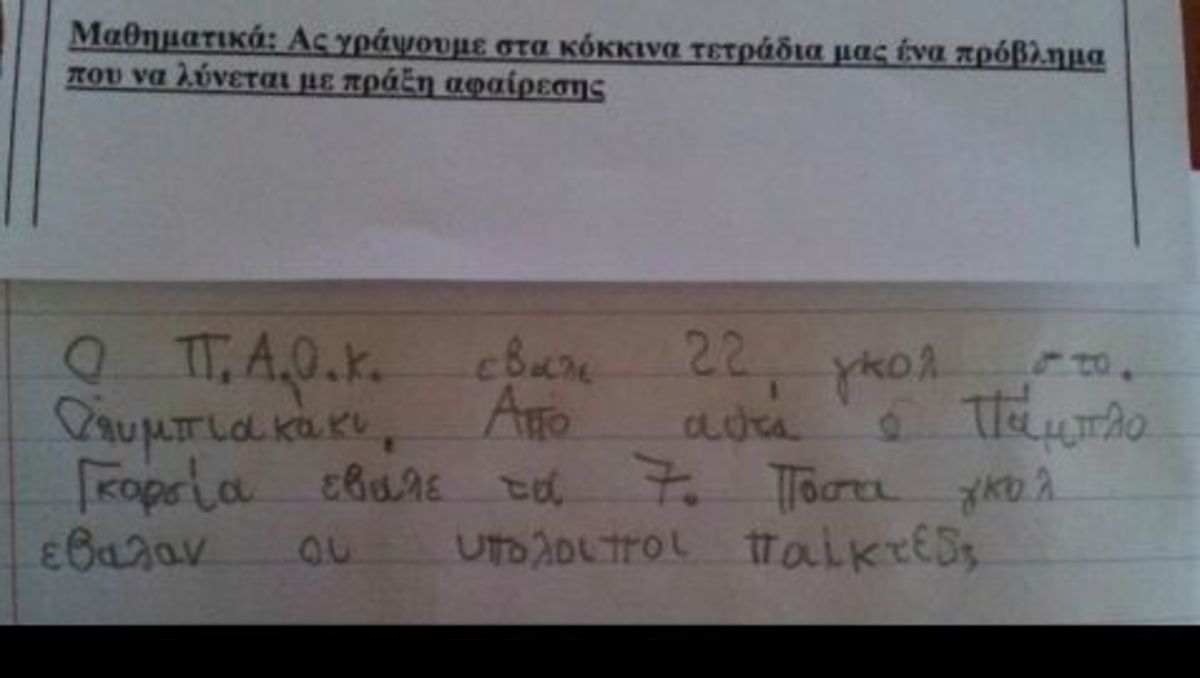 Μαθηματικά: Ας γράψουμε στα κόκκινα τετράδια μας ένα πρόβλημα
που να λύνεται με πράξη αφαίρεσης
Ο Π.Α.Ο.κ. εβαλε 22 γκολ στο.
Ολυμπιακάκι. Απο αυτά ο Πάμπλο
Γκαρσία εβαλε τα 7. Ποσα γκολ
εβαλαν οι υπολοιποι παίκτες;